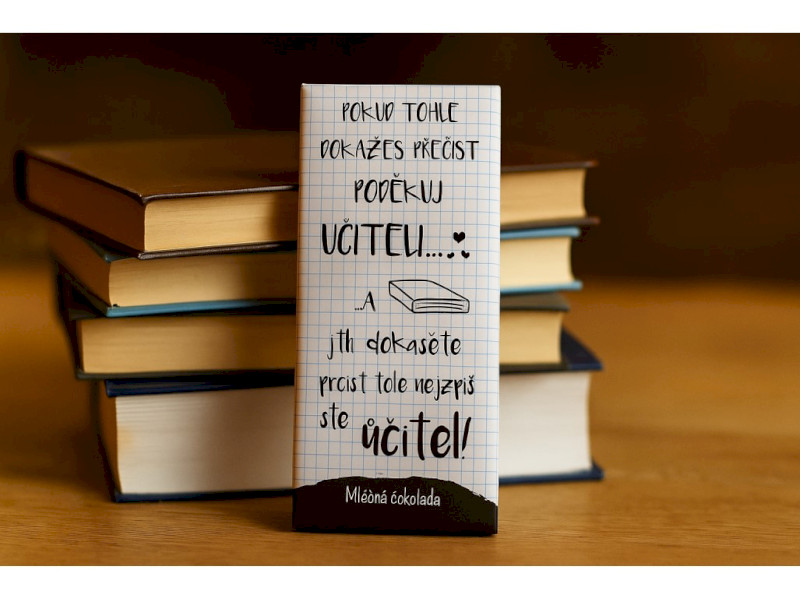 POKUD TOHLE
DOKAŽES PŘEČÍST
PODĚKUJ
UČITELI...
...A
jth dokasěte
prcist tole nejzpiš
ste ůčitel!
Mléòná ćokolada